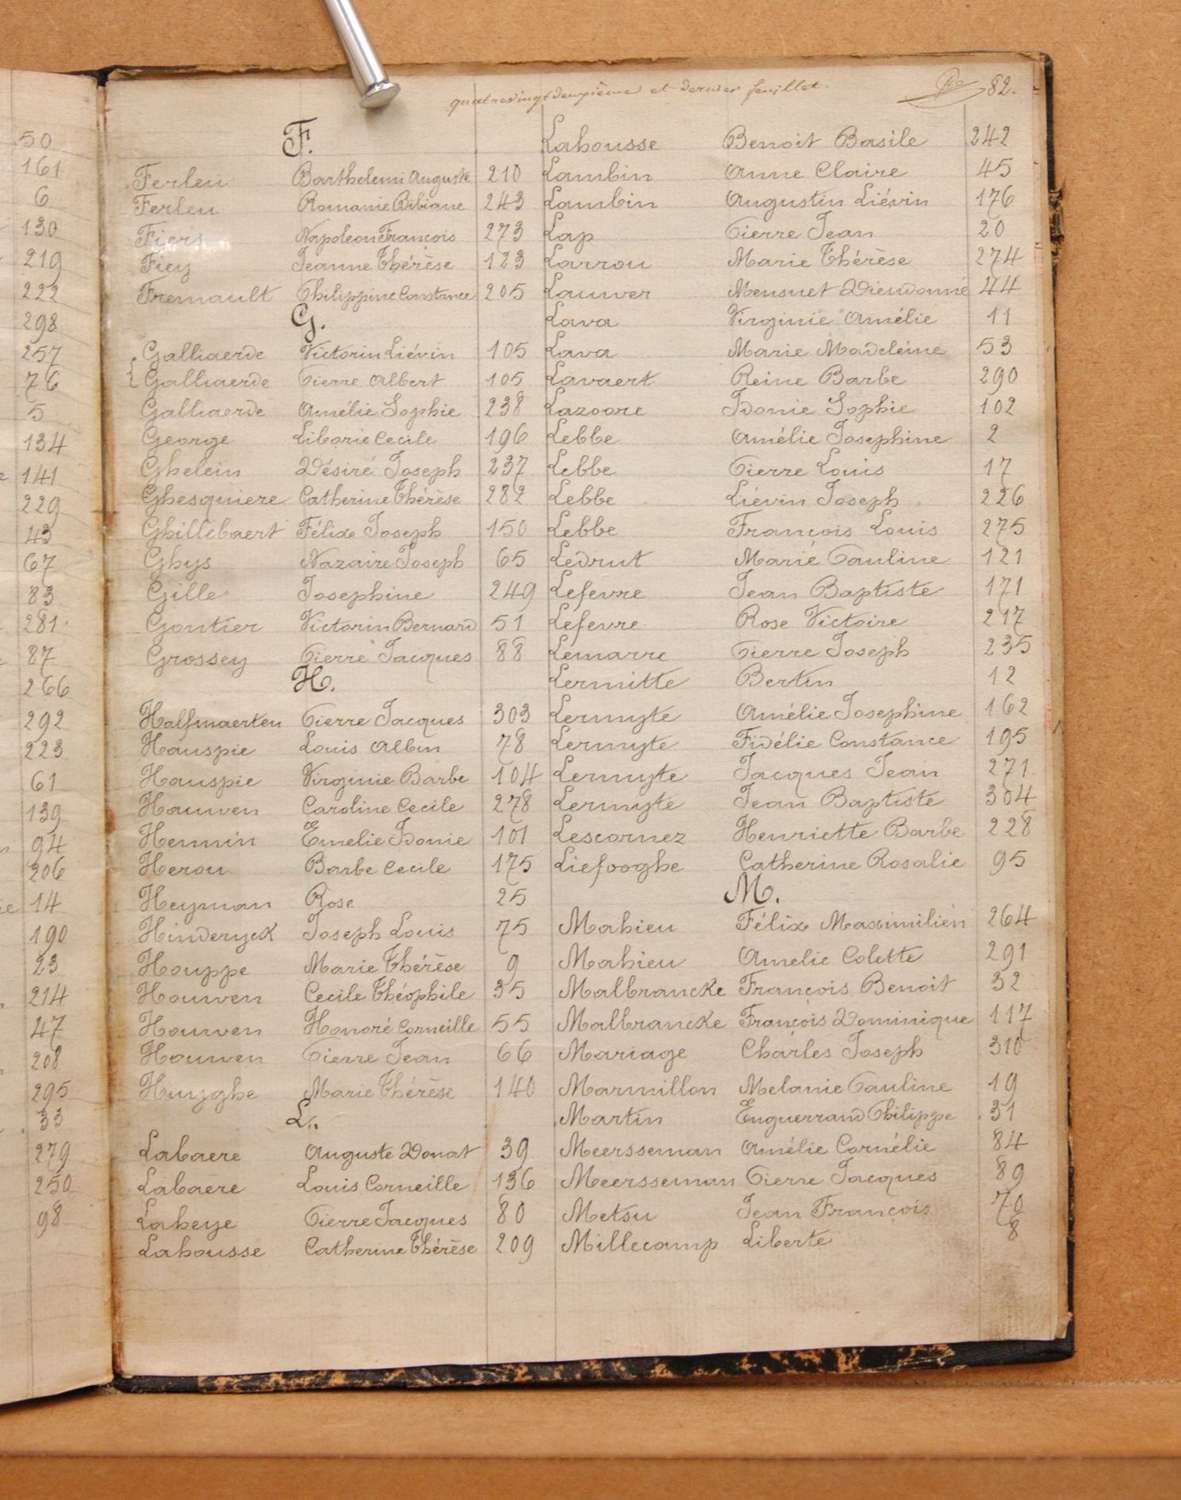 50
161
6
130
219
222
298
257
76
5
134
141
229
43
67
83
281
87
266
292
223
61
139
94
206
14
190
23
214
47
208
295
33
279
250
98
quatrevingt deuxième et dernier feuillet. 82.
F.
Ferleu Barthelemi Auguste 210
Ferleu Romanie Bibiane 243
Fiers Napoleon François 273
Fiey Jeanne Thérèse 183
Fremault Philippine Constance 205
G.
Galliaerde Victorin Liévin 105
Galliaerde Pierre Albert 105
Galliaerde Amélie Sophie 238
George Liborie Cecile 196
Ghelein Désiré Joseph 237
Ghesquiere Catherine Thérèse 282
Ghillebaert Félix Joseph 150
Ghys Nazaire Joseph 65
Gille Josephine 249
Gontier Victorin Bernard 51
Grossey Pierre Jacques 88
H.
Halfmaerten Pierre Jacques 303
Hauspie Louis Albin 78
Hauspie Virginie Barbe 104
Hauwen Caroline Cecile 278
Hennin Emelie Idonie 101
Herou Barbe Cecile 175
Heyman Rose 25
Hinderyck Joseph Louis 75
Houppe Marie Thérèse 9
Houwen Cecile Théophile 35
Houwen Honoré Corneille 55
Houwen Pierre Jean 66
Huyghe Marie Thérèse 140
L.
Labaere Auguste Donat 39
Labaere Louis Corneille 136
Labeye Pierre Jacques 80
Lahousse Catherine Thérèse 209
Lahousse Benoit Basile 242
Lambin Anne Claire 45
Lambin Augustin Liévin 176
Lap Pierre Jean 20
Larrou Marie Thérèse 274
Lauwer Mensuet Dieudonné 44
Lava Virginie Amélie 11
Lava Marie Madeleine 53
Lavaert Reine Barbe 290
Lazoore Idonie Sophie 102
Lebbe Amélie Josephine 2
Lebbe Pierre Louis 17
Lebbe Liévin Joseph 226
Lebbe François Louis 275
Ledrut Marie Pauline 121
Lefevre Jean Baptiste 171
Lefevre Rose Victoire 217
Lemarre Pierre Joseph 235
Lermitte Bertin 12
Lermyte Amélie Josephine 162
Lermyte Fidélie Constance 195
Lermyte Jacques Jean 271
Lermyte Jean Baptiste 304
Lescornez Henriette Barbe 228
Liefooghe Catherine Rosalie 95
M.
Mahieu Félix Maximilien 264
Mahieu Amelie Colette 291
Malbrancke François Benoit 32
Malbrancke François Dominique 117
Mariage Charles Joseph 310
Marmillon Melanie Pauline 19
Martin Enguerrand Philippe 31
Meersseman Amélie Cornélie 84
Meersseman Pierre Jacques 89
Metsu Jean François 70
Millecamp Liberte 8